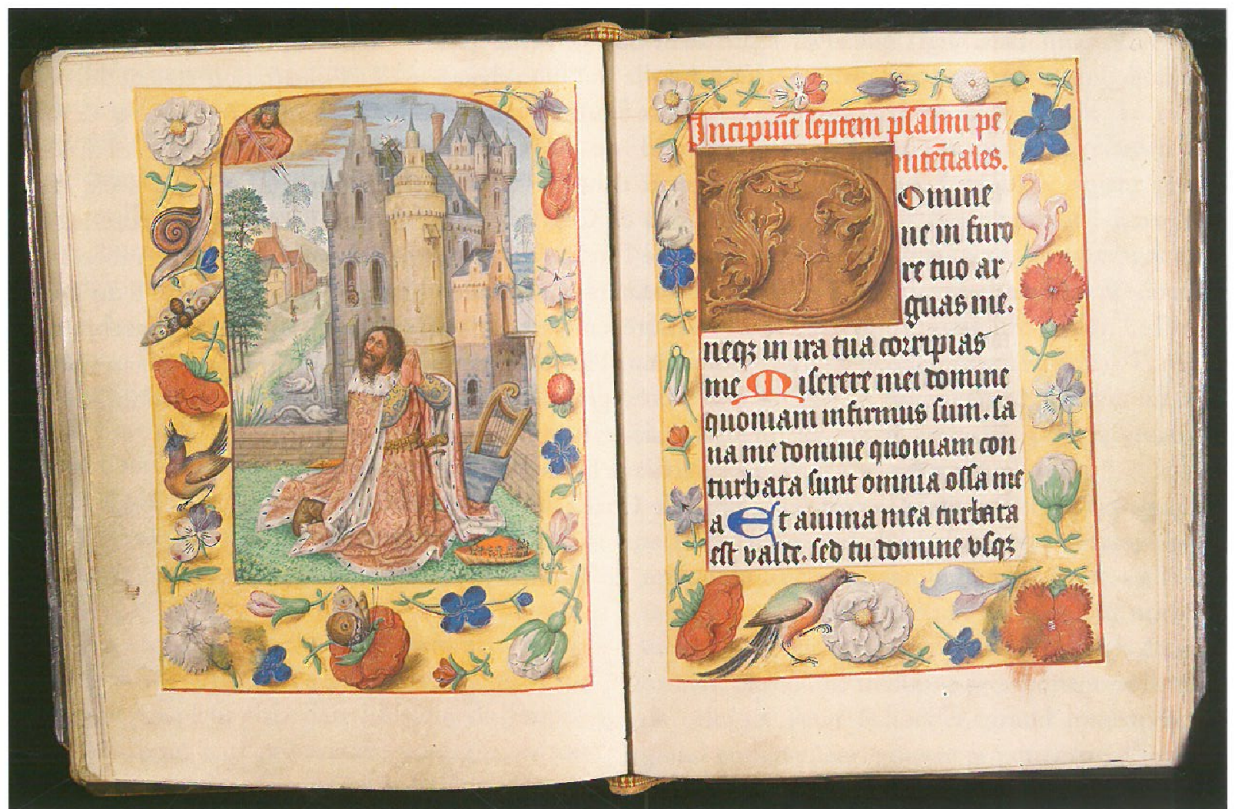 Incipiūt septem psalmi pe
nitētiales.
Domine
ne in furo
re tuo ar
guas me.
neqz in ira tua corripias
me Miserere mei domine
quoniam infirmus sum. sa
na me domine quoniam con
turbata sunt omnia ossa me
a Et anima mea turbata
est valde. sed tu domine vsqz